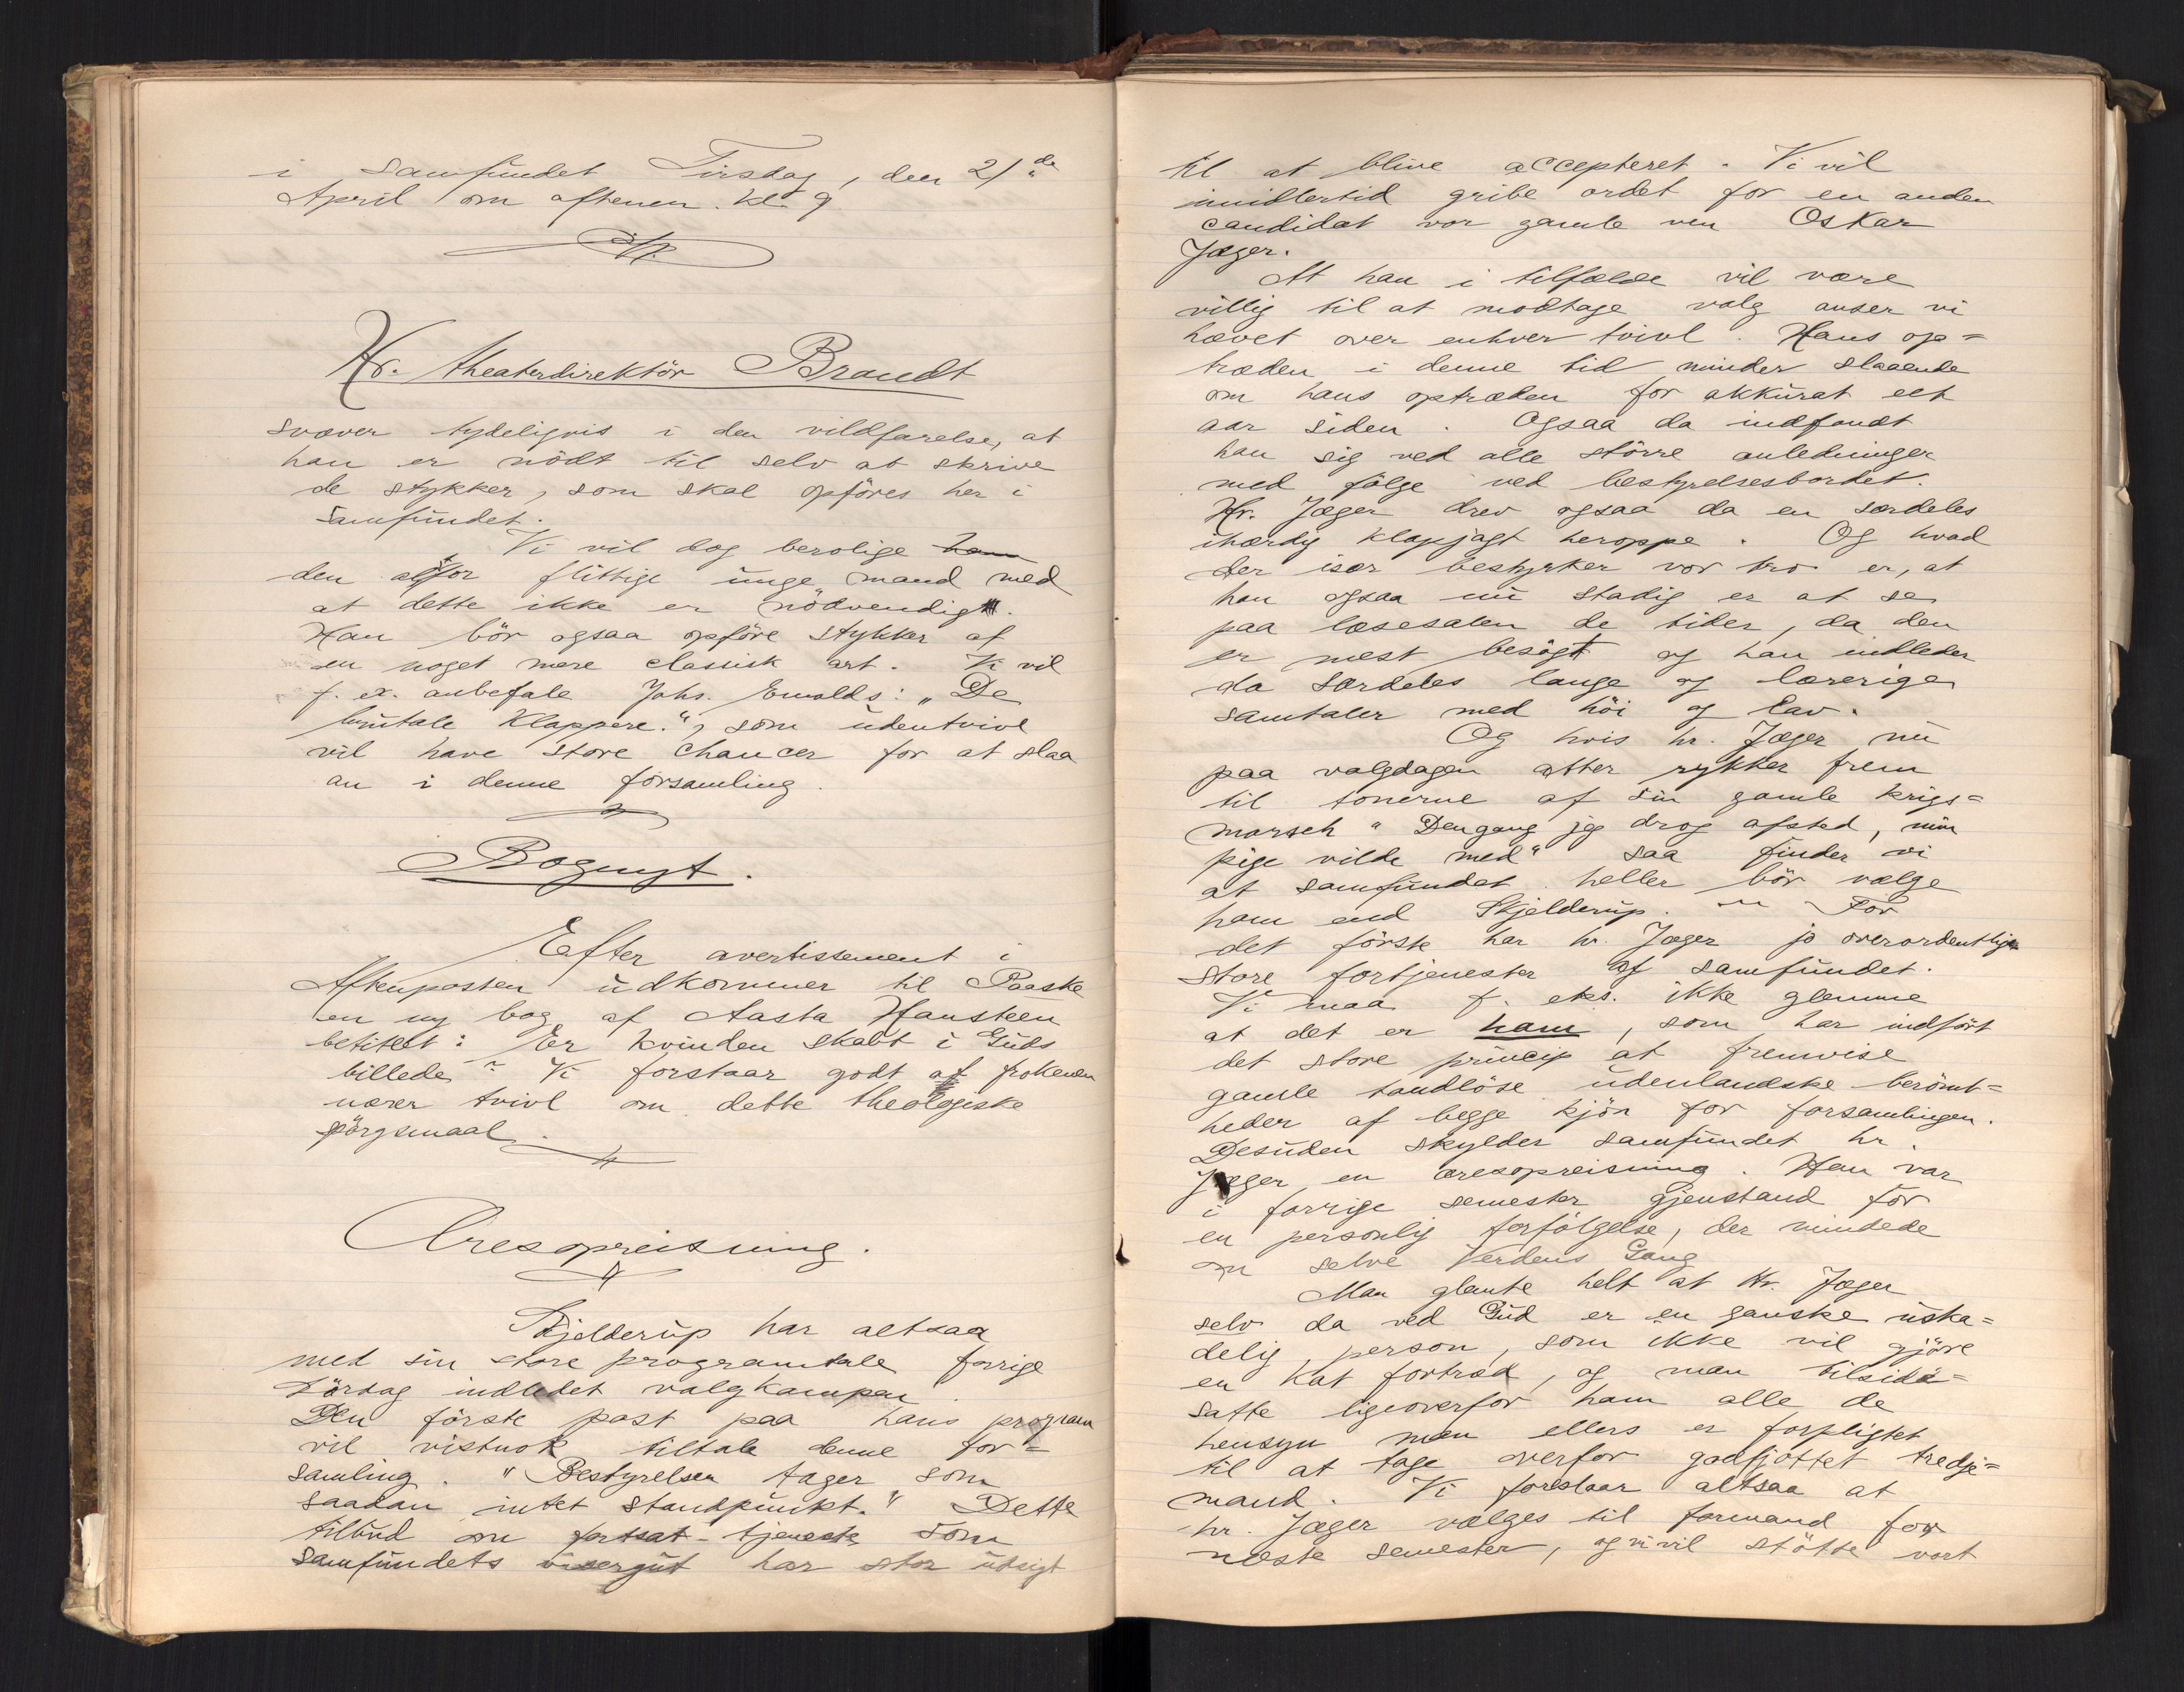 i Samfundet Tirsdag, den 21de
April om aftenen kl. 9.
Hr. theaterdirektör Brandt
svæver tydeligvis i den vildfarelse, at
han er nödt til selv at skrive
de stykker, som skal opföres her i
Samfundet.
Vi vil dog berolige ham
den altfor flittige unge mand med
at dette ikke er nödvendigt.
Han bör ogsaa opföre stykker af
en noget mere classisk art. Vi vil
f. ex. anbefale Johs. Ewalds: "De
brutale Klappere.", som udentvivl
vil have store chancer for at slaa
an i denne forsamling.
Bognyt.
Efter avertissement i
Aftenposten udkommer til Paaske
en ny bog af Aasta Hansteen
betitlet: Er kvinden skabt i Guds
billede? Vi forstaar godt at frøkenen
nærer tvivl om dette theologiske
spörgsmaal.
Æresopreisning.
Skjelderup har altsaa
med sin store programtale forrige
Lördag indledet valgkampen.
Den förste post paa hans program
vil vistnok tiltale denne for=
samling. "Bestyrelsen tager som
saadan intet standpunkt." Dette
tilbud om fortsat tjeneste som
Samfundets visergut har stor udsigt
til at blive accepteret. Vi vil
imidlertid gribe ordet for en anden
candidat vor gamle ven Oskar
Jæger.
At han i tilfælde vil være
villig til at modtage valg anser vi
hævet over enhver tvivl. Hans op=
træden i denne tid minder slaaende
om hans optræden for akkurat eet
aar siden. Ogsaa da indfandt
han sig ved alle större anledninger
med fölge ved bestyrelsesbordet.
Hr. Jæger drev ogsaa da en særdeles
ihærdig klapjagt heroppe. Og hvad
der især bestyrker vor tro er, at
han ogsaa nu stadig er at se
paa læsesalen de tider, da den
er mest besögt og han indleder
da særdeles lange og lærerige
samtaler med höi og lav.
Og hvis hr. Jæger nu
paa valgdagen atter rykker frem
til tonerne af sin gamle krigs=
marsch "Dengang jeg drog afsted, min
pige vilde med" saa finder vi
at samfundet heller bör vælge
ham end Skjelderup. — For
det förste har hr. Jæger jo overordentlige
store fortjenester af samfundet.
Vi maa f. eks. ikke glemme
at det er ham, som har indfört
det store princip at fremvise
gamle tandlöse udenlandske berömt=
heder af begge kjön for forsamlingen.
Desuden skylder samfundet hr.
Jæger en æresopreisning. Han var
i forrige semester gjenstand for
en personlig forfölgelse, der mindede
om selve Verdens Gang
Man glemte helt at Hr. Jæger
selv da ved Gud er en ganske uska=
delig person, som ikke vil gjöre
en kat fortræd, og man tilside=
satte ligeoverfor ham alle de
hensyn man ellers er forpligtet
til at tage overfor godfjottet tredje=
mand. Vi foreslaar altsaa at
hr. Jæger vælges til formand for
næste semester, og vi vil stötte vort